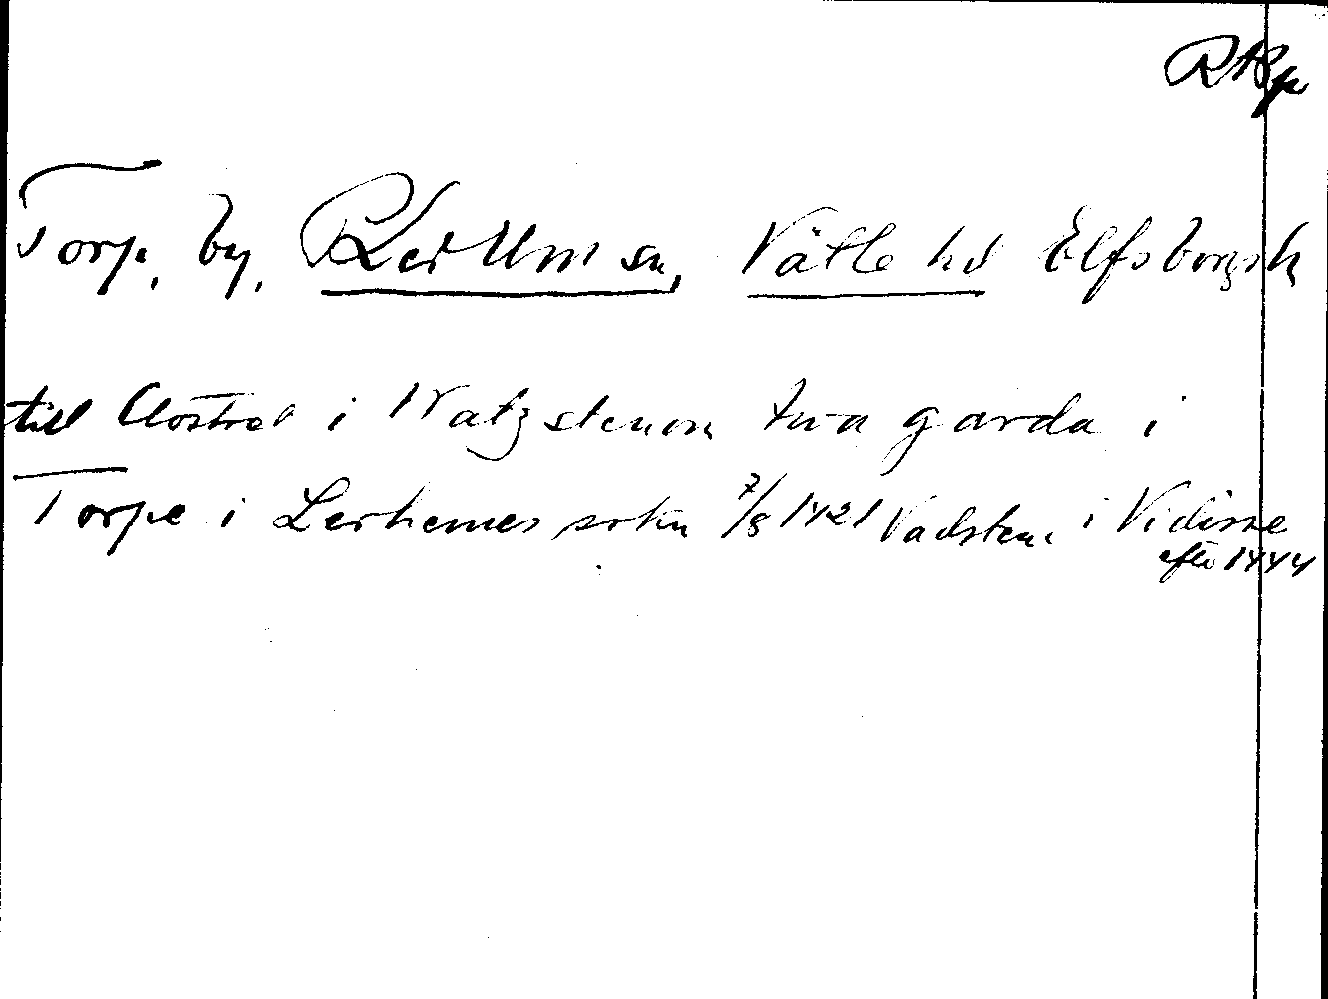 RAp
Torp, by, Lerums sn, Vättle hd Elfsborgs l.
till Clostret i Watzstenom twa garda i
Torpe i Lerhemes sokn 7/8 1421 Vadstena i Vidisse
efter 1444